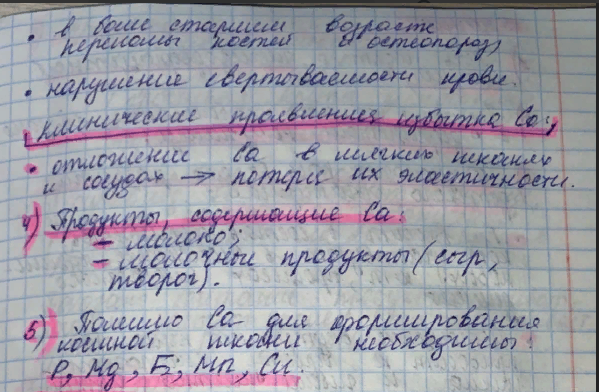 • в более старшем возрасте
переломы костей и остеопороз,
• нарушение свертываемости крови.
клинические проявления избытка Ca:
• отложение Ca в мягких тканях
и сосудах → потеря их эластичности.
4) Продукты, содержащие Ca:
– молоко;
– молочные продукты (сыр,
творог).
5) Помимо Ca для формирования
костной ткани необходимы:
P, Mg, Б, Mn, Cu.